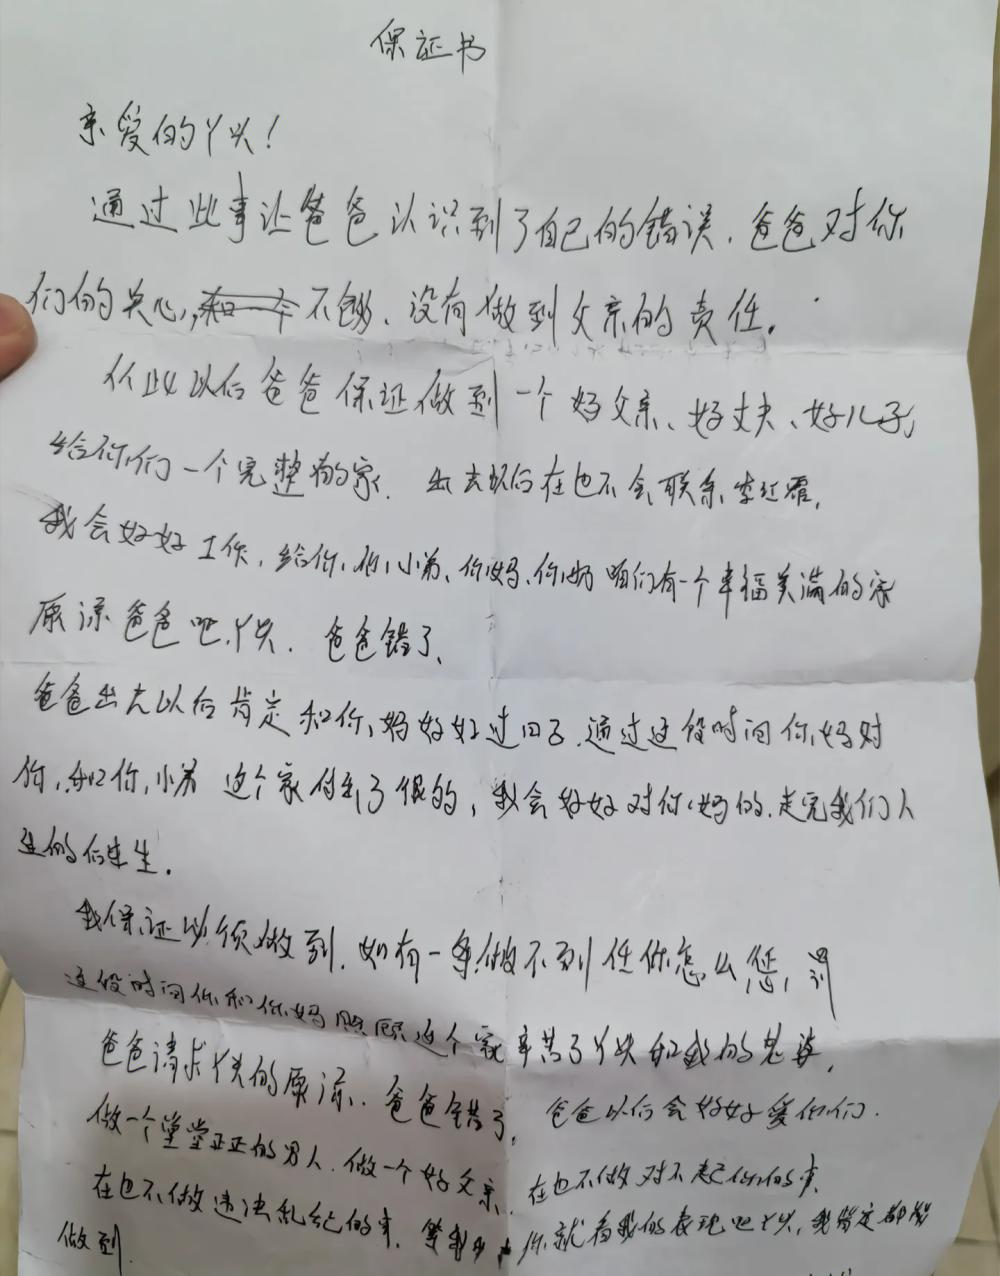 保证书
亲爱的丫头!
通过此事让爸爸认识到了自己的错误,爸爸对你
们的关心,不够、没有做到父亲的责任。
从此以后爸爸保证做到一个好父亲、好丈夫、好儿子,
给你们一个完整的家. 出去以后在也不会联系李红霞,
我会好好工作,给你,你小弟、你妈、你奶 咱们有一个幸福美满的家
原谅爸爸吧.丫头. 爸爸错了、
爸爸出去以后肯定和你妈好好过日子.通过这段时间你妈对
你,和你小弟 这个家付出了很的,我会好好对你妈的.走完我们人
生的后半生.
我保证必须做到.如有一条做不到任你怎么惩,罚
这段时间你和你妈照顾这个家辛苦了丫头和我的老婆,
爸爸请求丫头的原谅.爸爸错了, 爸爸以后会好好爱你们.
做一个堂堂正正的男人.做一个好父亲、在也不做对不起你们的事.
在也不做违法乱纪的事.等我出 你就看我的表现吧丫头,我肯定都能
做到